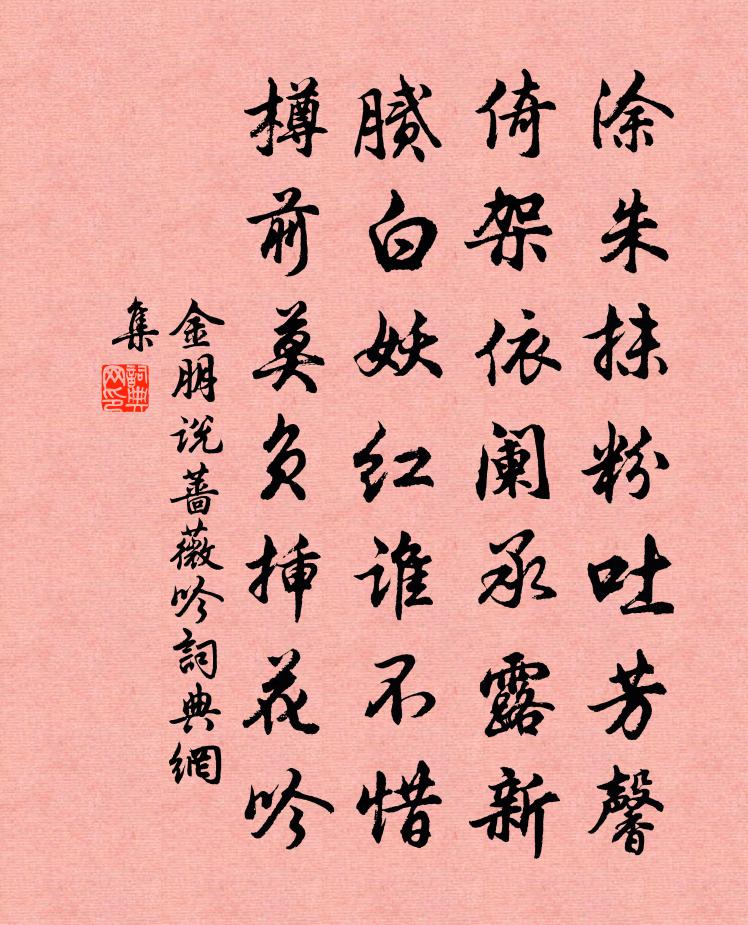 涂朱抹粉吐芳馨
倚架依阑承露新
腻白妖红谁不惜
樽前莫负插花吟
金朋说蔷薇吟詞典網
集
詞典网印